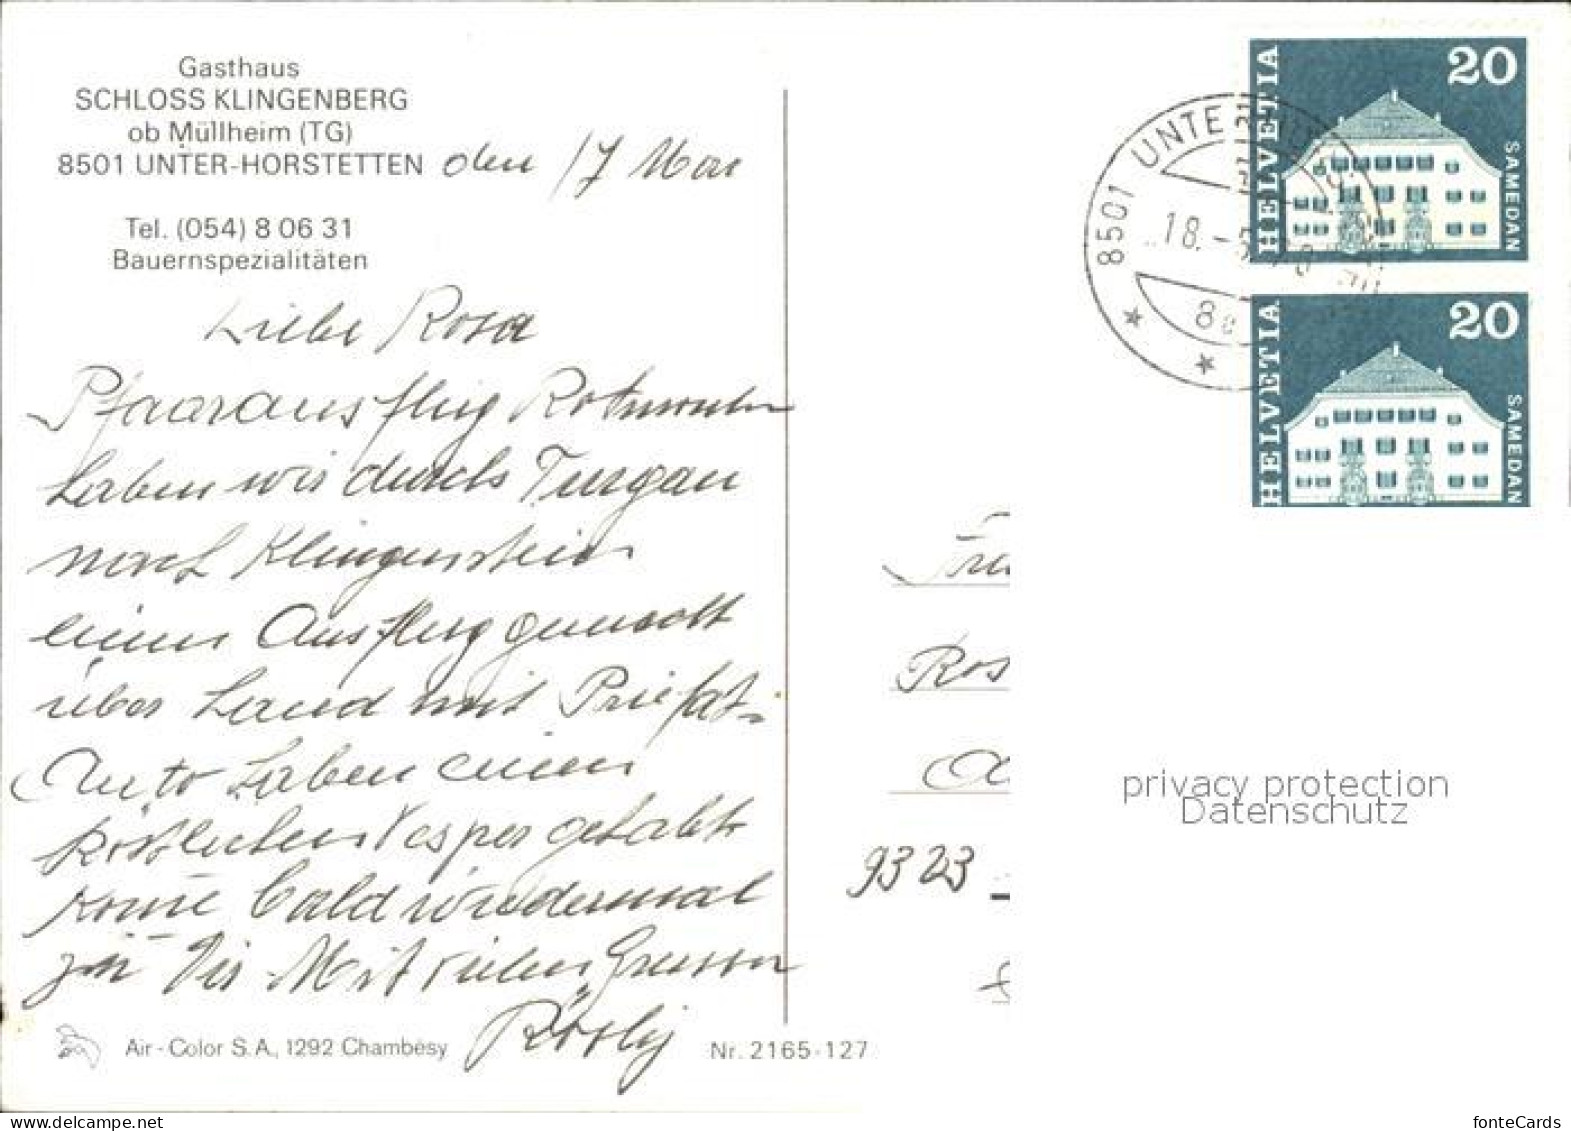 Gasthaus
SCHLOSS KLINGENBERG
ob Müllheim (TG)
8501 UNTER-HORSTETTEN
den 17 Mai
Tel. (054) 8 06 31
Bauernspezialitäten
Liebe Rosa
Pfaarausflug
haben wir durch Turgau
nach Klingenstein
einen Ausflug gemacht
über Land mit Priefat-
Auto haben einen
köstlichen Vesper gehabt
kome bald wiedermal
zu Dir Mit vielen Grussen
Rösly
Air-Color S.A., 1292 Chambésy
Nr. 2165-127
8501 UNTE
18.-5.
HELVETIA
20
SAMEDAN
HELVETIA
20
SAMEDAN
Ros
9323
privacy protection
Datenschutz
fonteCards
www.delcampe.net